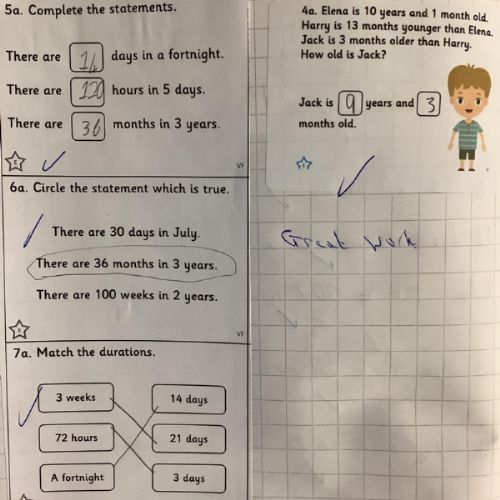 5a. Complete the statements.
There are 14 days in a fortnight.
There are 120 hours in 5 days.
There are 36 months in 3 years.
E
VF
6a. Circle the statement which is true.
There are 30 days in July.
There are 36 months in 3 years.
There are 100 weeks in 2 years.
E
VF
7a. Match the durations.
3 weeks
14 days
72 hours
21 days
A fortnight
3 days
4a. Elena is 10 years and 1 month old.
Harry is 13 months younger than Elena.
Jack is 3 months older than Harry.
How old is Jack?
Jack is 9 years and 3
months old.
Great work